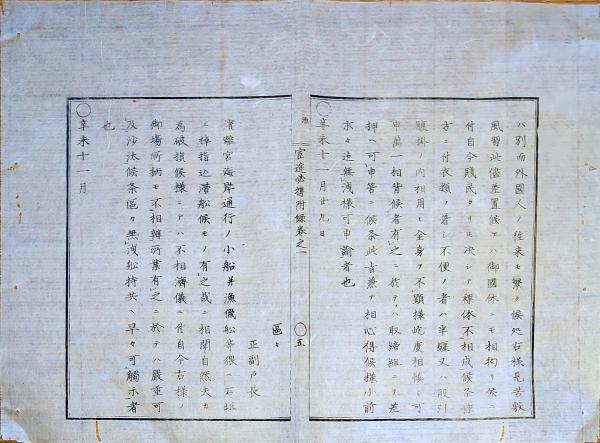 ハ別而外國人ノ往来モ繁ク候処右様見苦敷
風習此儘差置候テハ御國体ニモ相拘リ候
付自今賤民タリモ決シテ裸体不相成候条稼
方ニ付衣類ヲ着シ不便ノ者ハ半纏又ハ股引
腹掛ノ内相用ヒ全身ヲ不顕様屹度相慎ミ可
申萬一相背候者有之ニ於テハ取締組ニテ差
押ヘ可申筈ニ候条此旨兼テ相心得候様小前
末々迄無洩様可申諭者也
〇辛未十一月廿九日
官途必携附録巻之一
〇五
區々
正副戸長
濱離宮海岸通行ノ小船并漁獵舩等猥ニ石垣
ニ棹指込滞舩候モノ有之哉ニ相聞自然夫カ
為破損候様ニテハ不相濟儀ニ付自今右様ノ
御場所柄モ不相辨所業有之ニ於テハ嚴重可
及沙汰候条區々無洩舩持共ヘ早々可觸示者
也
〇辛未十一月